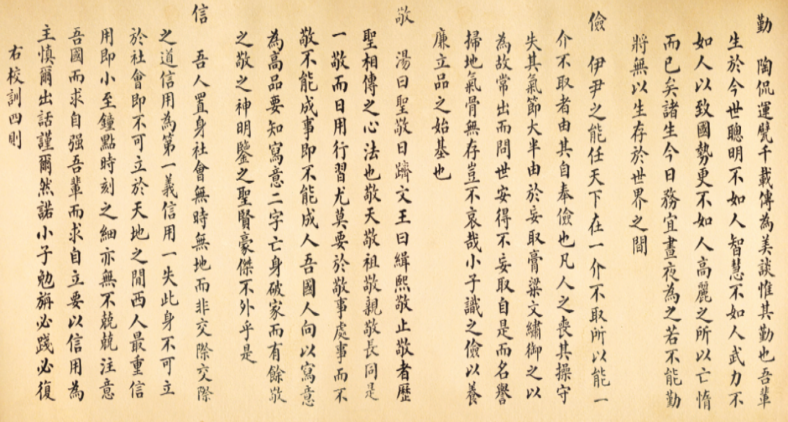 勤 陶侃運甓千載傳為美談惟其勤也吾輩
生於今世聰明不如人智慧不如人武力不
如人以致國勢更不如人高麗之所以亡惰
而已矣諸生今日務宜晝夜為之若不能勤
將無以生存於世界之間
儉 伊尹之能任天下在一介不取所以能一
介不取者由其自奉儉也凡人之喪其操守
失其氣節大半由於妄取膏粱文繡御之以
為故常出而問世安得不妄取自是而名譽
掃地氣骨無存豈不哀哉小子識之儉以養
廉立品之始基也
敬 湯曰聖敬日躋文王曰緝熙敬止敬者歷
聖相傳之心法也敬天敬祖敬親敬長同是
一敬而日用行習尤莫要於敬事處事而不
敬不能成事即不能成人吾國人向以寫意
為高品要知寫意二字亡身破家而有餘敬
之敬之神明鑒之聖賢豪傑不外乎是
信 吾人置身社會無時無地而非交際交際
之道信用為第一義信用一失此身不可立
於社會即不可立於天地之間西人最重信
用即小至鐘點時刻之細亦無不兢兢注意
吾國而求自强吾輩而求自立要以信用為
主慎爾出話謹爾然諾小子勉旃必踐必復
右校訓四則